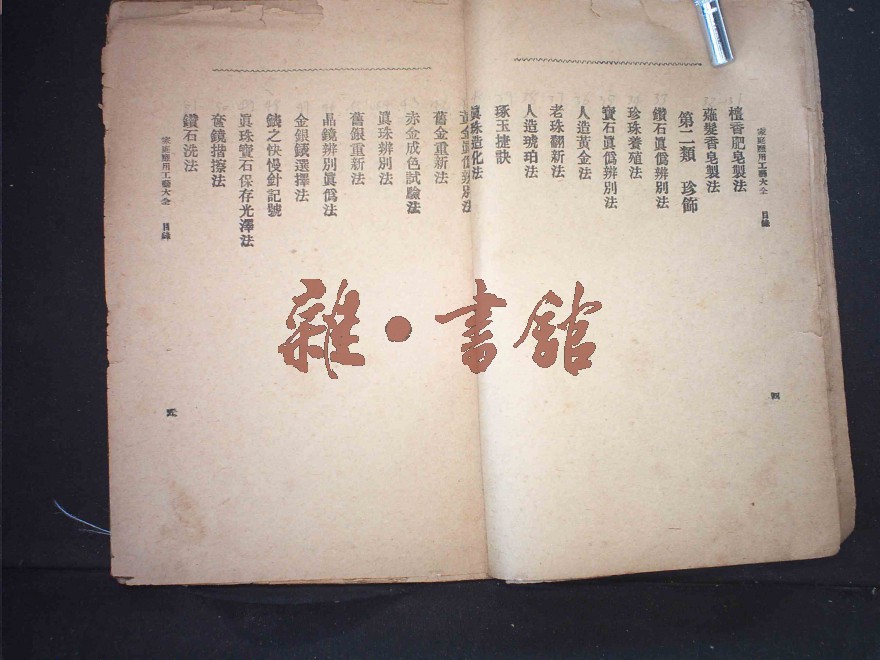 家庭應用工藝大全 目錄
檀香肥皂製法
薙髮香皂製法
第二類 珍飾
鑽石眞僞辨別法
珍珠養殖法
寶石眞僞辨別法
人造黃金法
老珠翻新法
人造琥珀法
琢玉捷訣
眞珠造化法
四
黃金眞僞辨別法
舊金重新法
赤金成色試驗法
眞珠辨別法
舊銀重新法
晶鏡辨別眞僞法
金銀錶選擇法
錶之快慢針記號
眞珠寶石保存光澤法
奩鏡揩擦法
鑽石洗法
家庭應用工藝大全 目錄
五
雜·書館